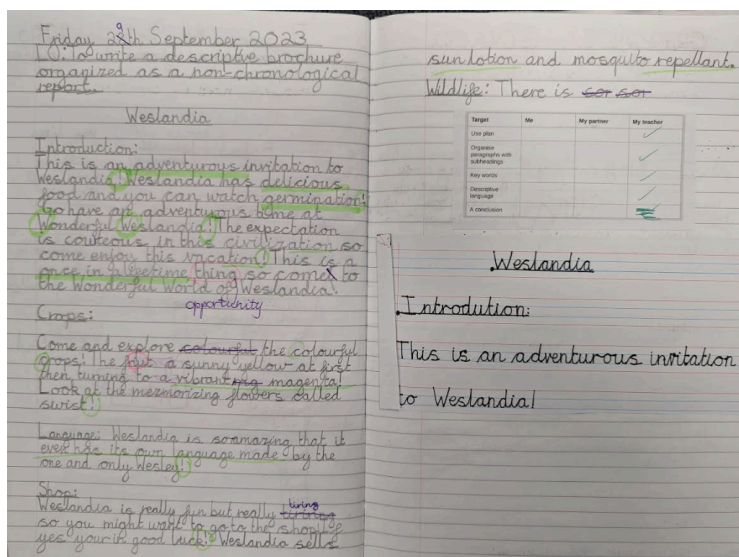 Friday 29th September 2023
LO: To write a descriptive brochure
organized as a non-chronological
report.
Weslandia
Introduction:
This is an adventurous invitation to
Weslandia! Weslandia has delicious
food and you can watch germination!
go have an adventurous time at
Wonderful Weslandia! The expectation
is courteous in this civilization so
come enjoy this vacation! This is a
once in a lifetime thing so come to
the Wonderful World of Weslandia!
opportunity
Crops:
Come and explore colourful the colourful
crops! The fruit a sunny yellow at first
then turning to a vibrant magenta!
Look at the mezmorizing flowers called
swist!
Language: Weslandia is so amazing that it
even has its own language made by the
one and only Wesley!
Shop:
Weslandia is really fun but really tiring
so you might want to go to the shop! If
yes your in good luck! Weslandia sells
sun lotion and mosquito repellant.
Wildlife: There is
Target Me My partner My teacher
Use plan
Organise
paragraphs with
subheadings
Key words
Descriptive
language
A conclusion
Weslandia
Introdution:
This is an adventurous invitation
to Weslandia!